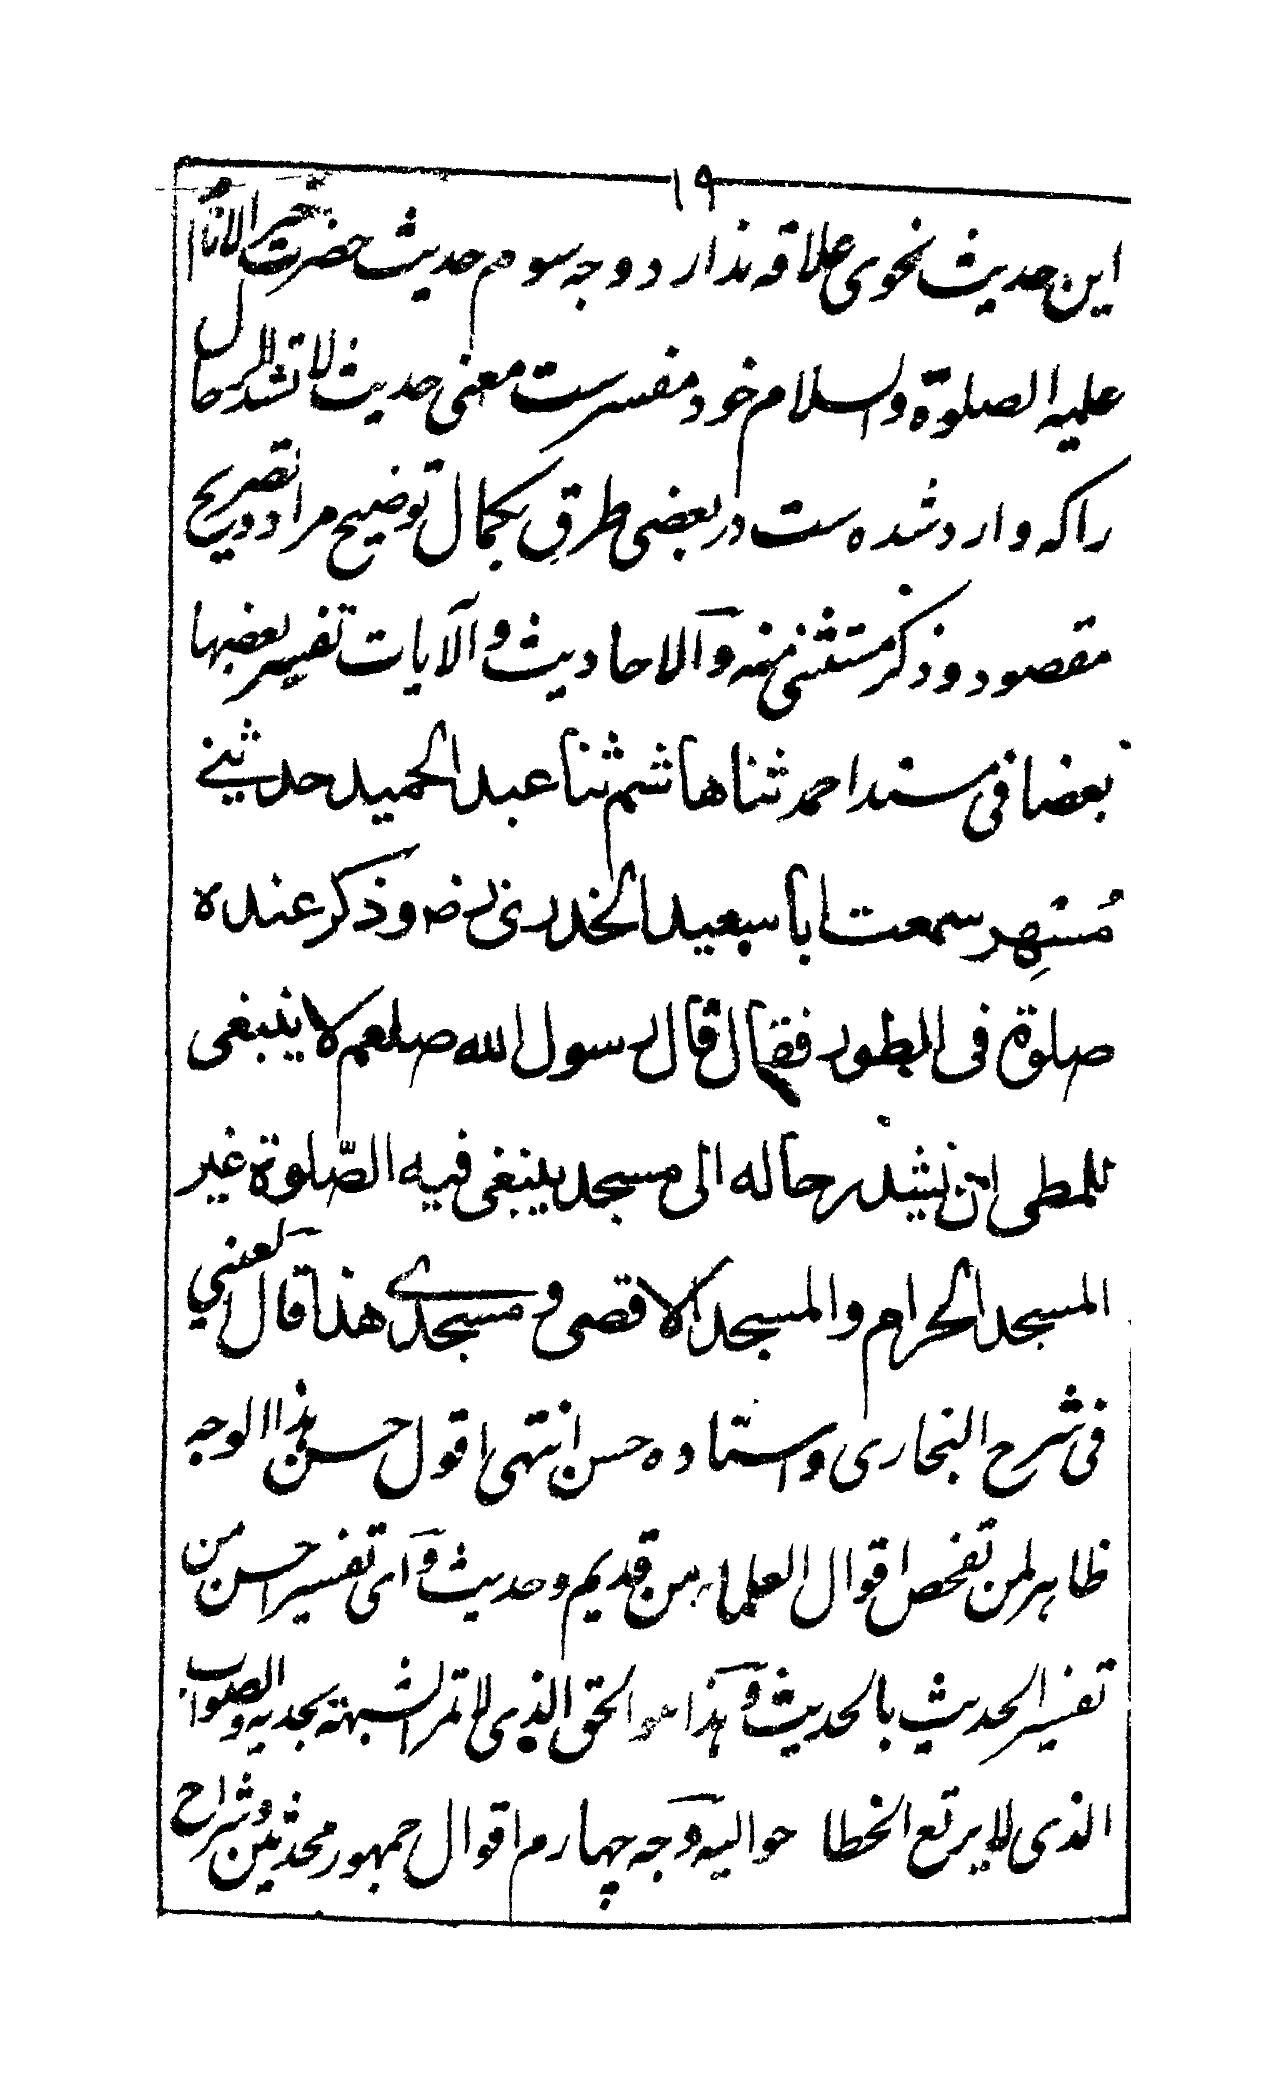 ١٩
این حدیث نحوی علاقه ندارد وجه سوم حدیث حضرت خیر الانام
علیه الصلوة والسلام خود مفسرست معنی حدیث لا تشد الرحال
راکه وارد شده ست در بعضی طرق بکمال توضیح مراد و تصریح
مقصود و ذکر مستثنی منه و الاحادیث و الآیات تفسیر بعضها
بعضا فی مسند احمد ثنا هاشم ثنا عبد الحمید حدثینے
مُسْهِر سمعت ابا سعید الخدری رض و ذکر عنده
صلوة فی الطور فقال قال رسول الله صلعم لا ینبغی
للمطی ان تشد رحاله الی مسجد ینبغی فیه الصّلوة غیر
المسجد الحرام والمسجد الاقصی و مسجدے هذا قال لعینی
فی شرح البخاری و استاده حسن انتهی اقول حسن هذا الوجه
ظاهر لمن تفحص اقوال العلماء من قدیم و حدیث و ای تفسیر احسن من
تفسیر الحدیث بالحدیث و هذا هو الحق الذی لا تمر الشبهته بجدیه و الصواب
الذی لا یرتع الخطا حوالیه وجه چهارم اقوال جمهور محدثین و شراح